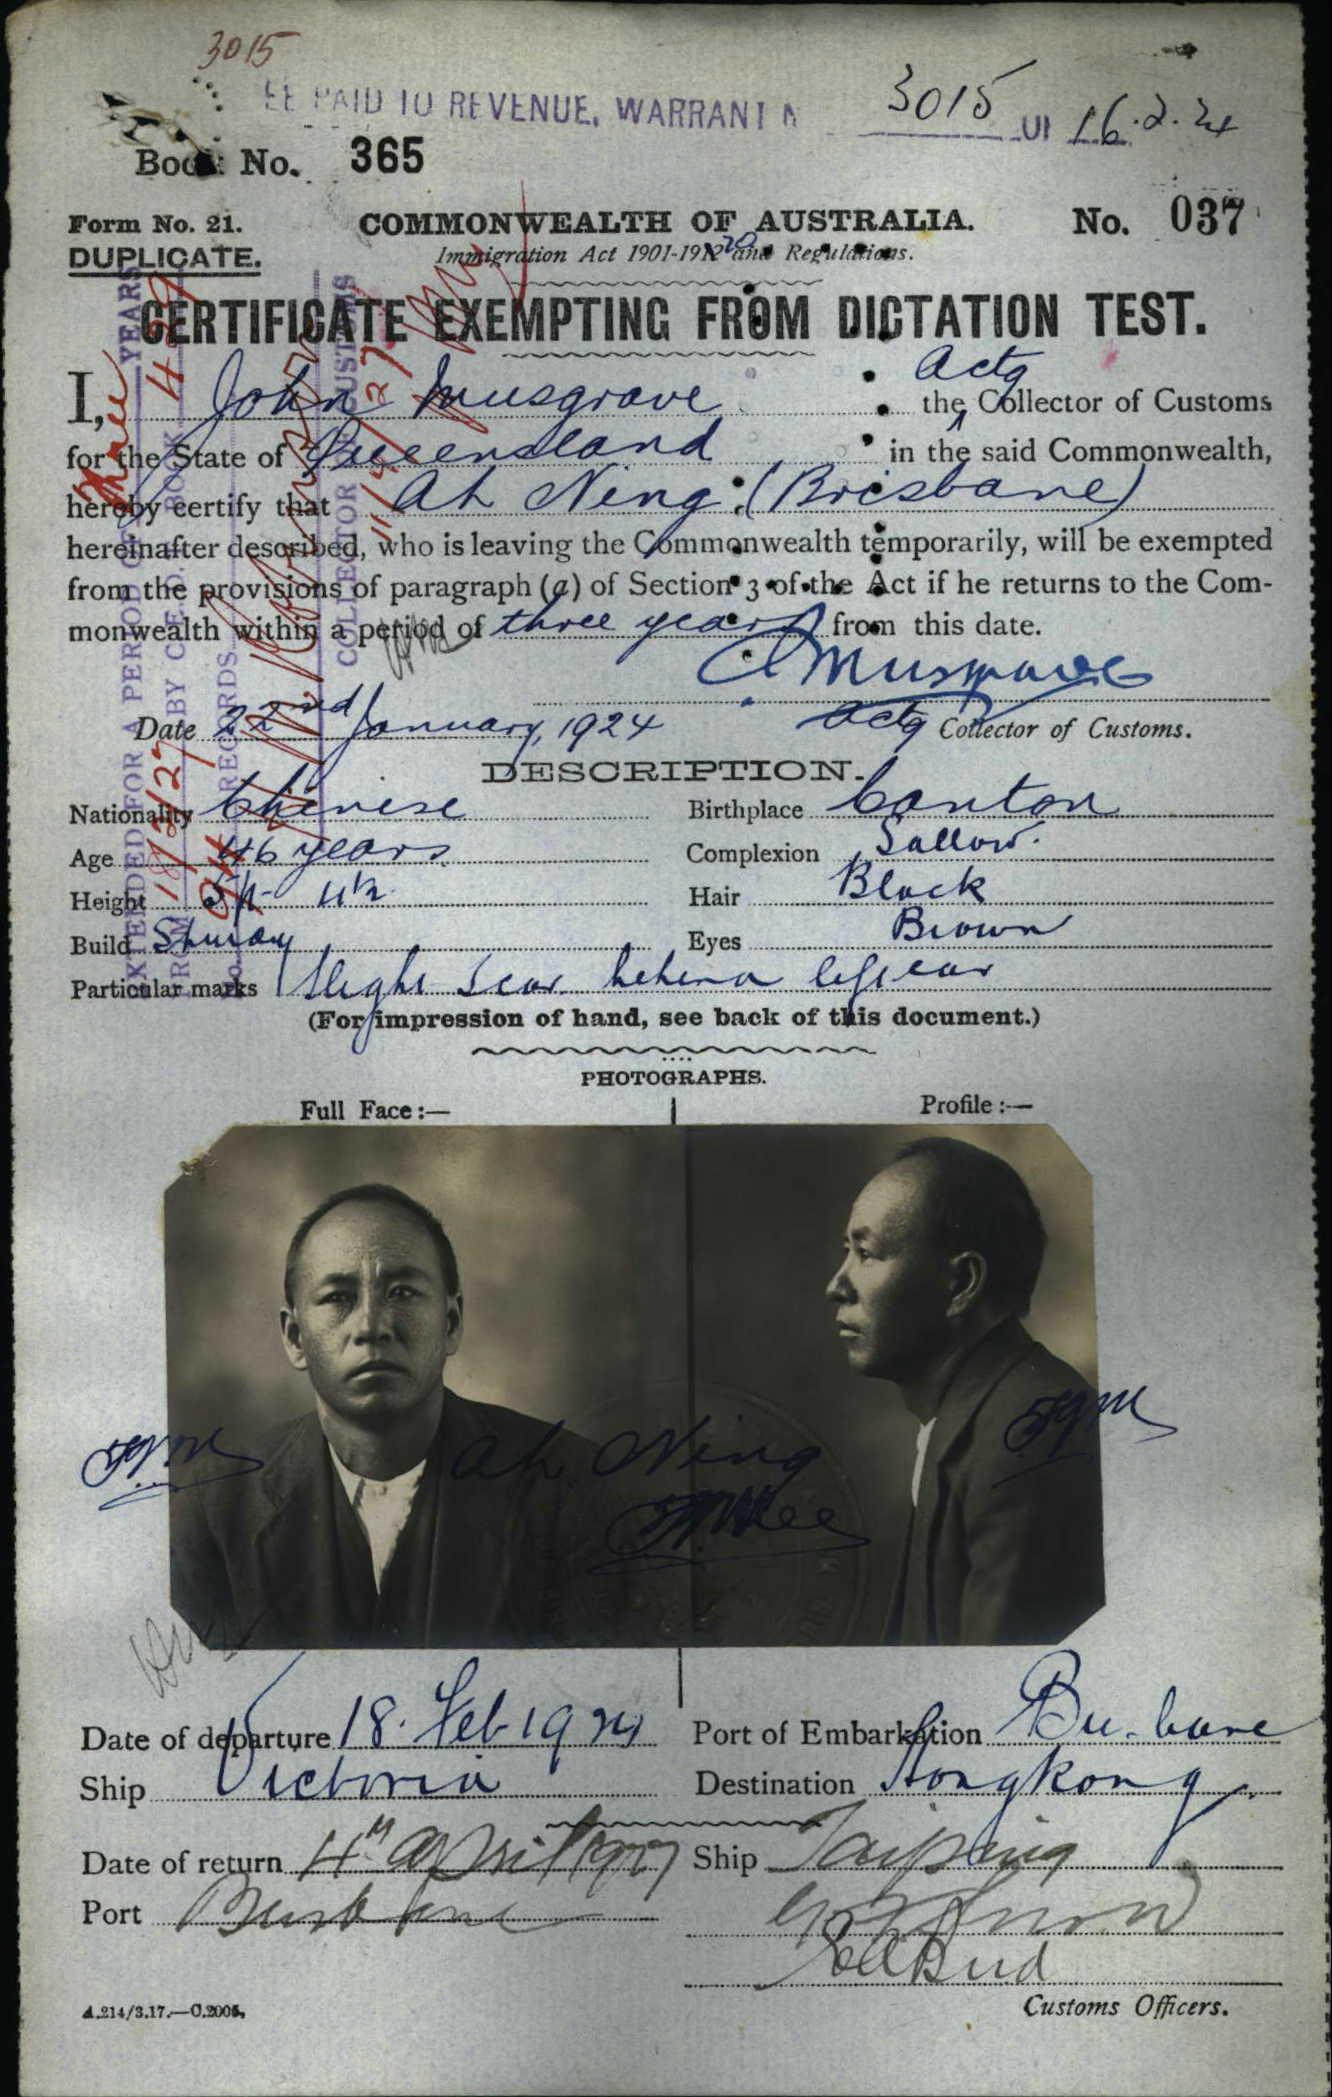 3015
EE PAID TO REVENUE, WARRANT N 3015 16.2.24
Book No. 365
Form No. 21. COMMONWEALTH OF AUSTRALIA. No. 037
DUPLICATE. Immigration Act 1901-1912 20 and Regulations.
CERTIFICATE EXEMPTING FROM DICTATION TEST.
I, John Musgrave Actg the Collector of Customs
for the State of Queensland in the said Commonwealth,
hereby certify that Ah Ning (Brisbane)
hereinafter described, who is leaving the Commonwealth temporarily, will be exempted
from the provisions of paragraph (a) of Section 3 of the Act if he returns to the Com-
monwealth within a period of three years from this date.
Musgrave
Date 22nd January, 1924 Actg Collector of Customs.
EXTENDED FOR A PERIOD OF three YEARS
FROM BY C.E.D.T. BOOK
No. RECORDS
COLLECTOR OF CUSTOMS
DESCRIPTION.
Nationality Chinese Birthplace Canton
Age 46 years Complexion Sallow.
Height 5ft 4½ Hair Black
Build Eyes Brown
Particular marks Slight scar behind left ear
(For impression of hand, see back of this document.)
PHOTOGRAPHS.
Full Face:— Profile:—
Ah Ning
Date of departure 18. Feb 1924 Port of Embarkation Brisbane
Ship Victoria Destination Hongkong.
Date of return 4th April 1927 Ship Taiping
Port Brisbane
Customs Officers.
A.214/3.17.—C.2005.